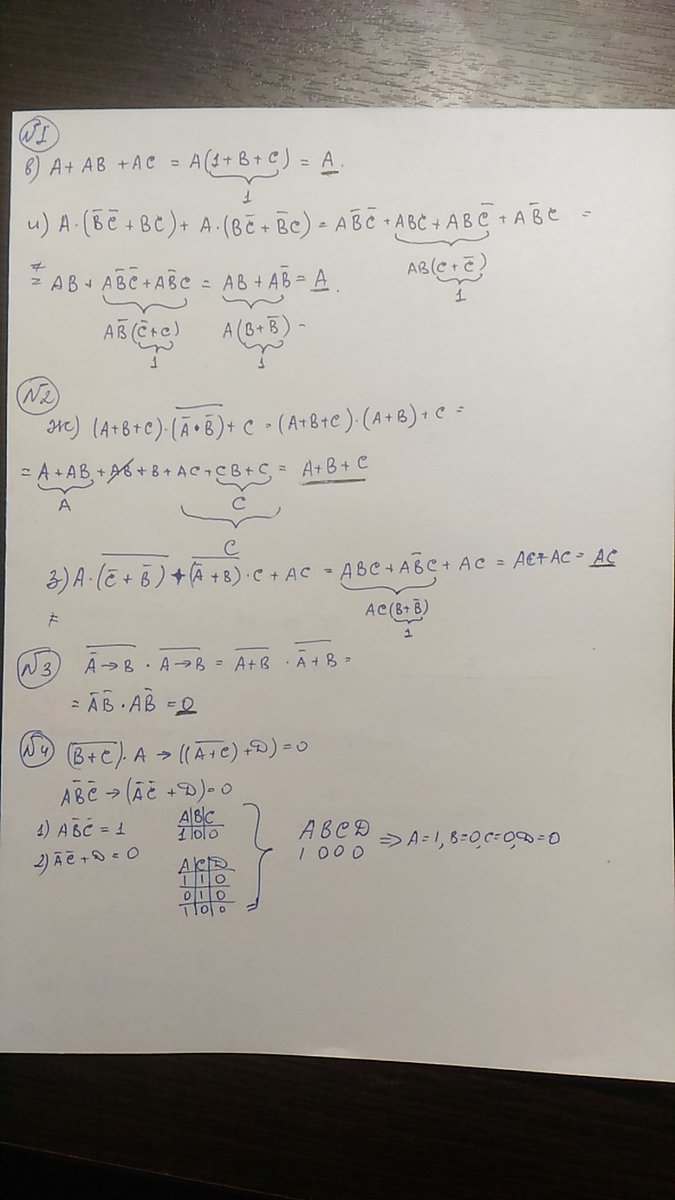 №1
в) A + AB + AC = A(1 + B + C) = A.
1
и) A·(B̅C̅ + BC) + A·(BC̅ + B̅C) = AB̅C̅ + ABC + ABC̅ + AB̅C =
AB(C + C̅)
1
= AB + AB̅C̅ + AB̅C = AB + AB̅ = A.
AB̅(C̅ + C) A(B + B̅) -
1 1
№2
ж) (A+B+C)·(\overline{A̅·B̅}) + C = (A+B+C)·(A+B) + C =
= A + AB + AB + B + AC + CB + C = A+B+C
A C
C
з) A·(\overline{C̅ + B̅}) + (\overline{A̅ + B})·C + AC = ABC + AB̅C + AC = AC + AC = AC
AC(B + B̅)
1
№3 \overline{A̅→B} · \overline{A→B} = \overline{A+B} · \overline{A̅+B} =
= A̅B̅ · AB̅ = 0
№4 (\overline{B+C})·A → ((\overline{A+C}) + D) = 0
AB̅C̅ → (A̅C̅ + D) = 0
1) AB̅C̅ = 1 A|B|C
1|0|0
2) A̅C̅ + D = 0 A|C|D
1|1|0
0|1|0
1|0|0
A B C D ⇒ A=1, B=0, C=0, D=0
1 0 0 0